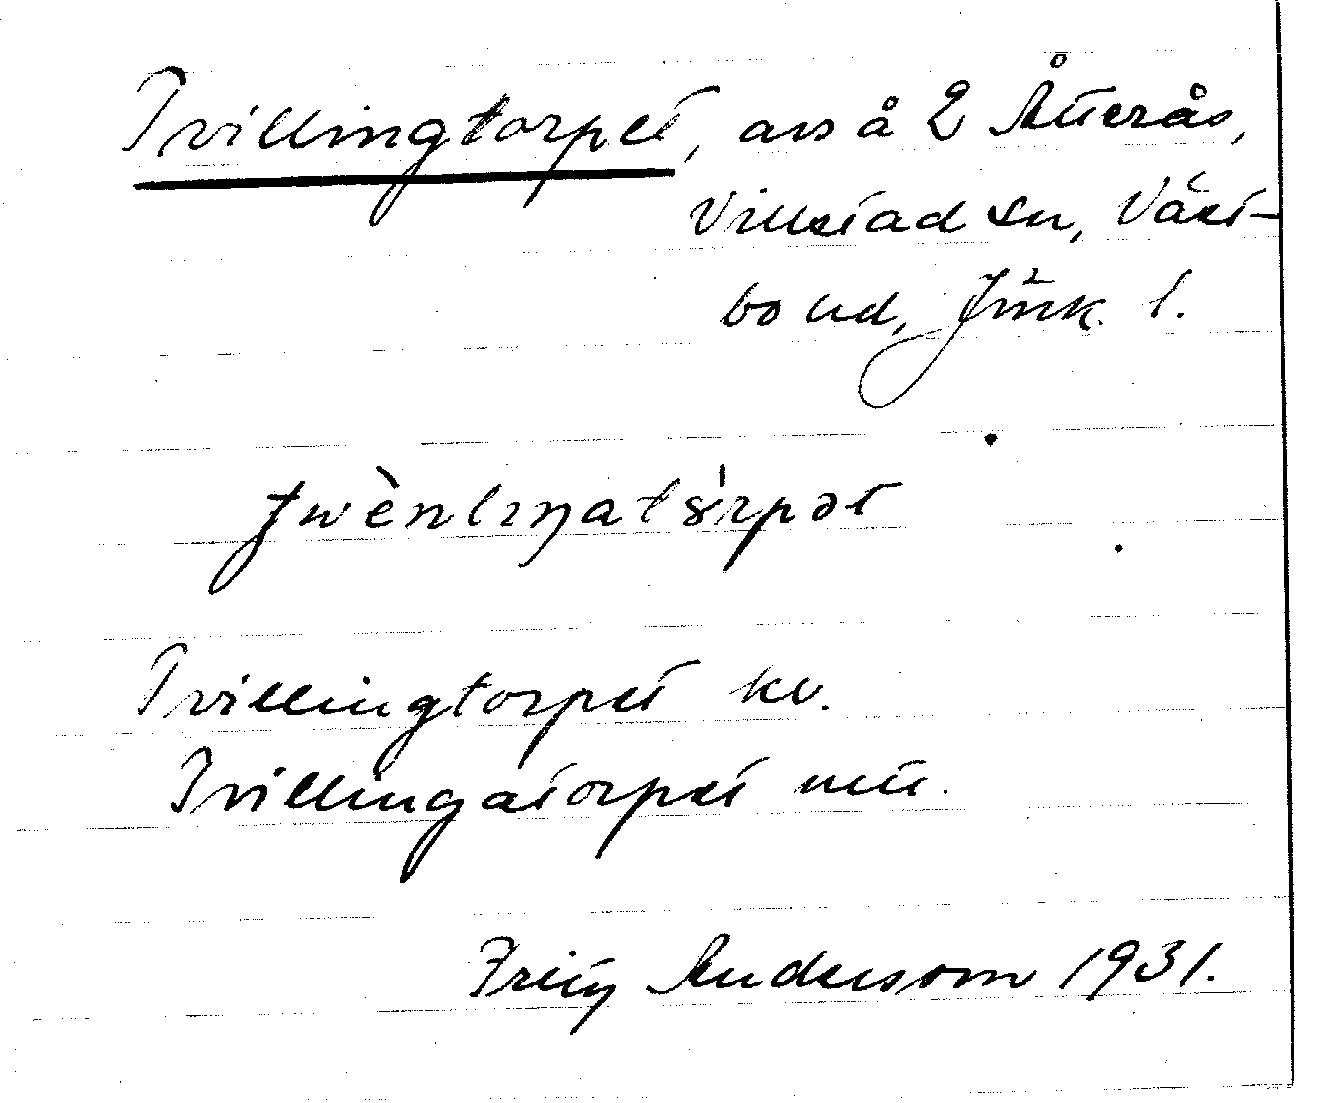 Tvillingtorpet, avs å 2 Åtterås,
Villstad sn, Väst-
bo hd, Jönk. l.
Tvillingtorpet kv.
Tvillingatorpet utt.
Fritz Andersson 1931.